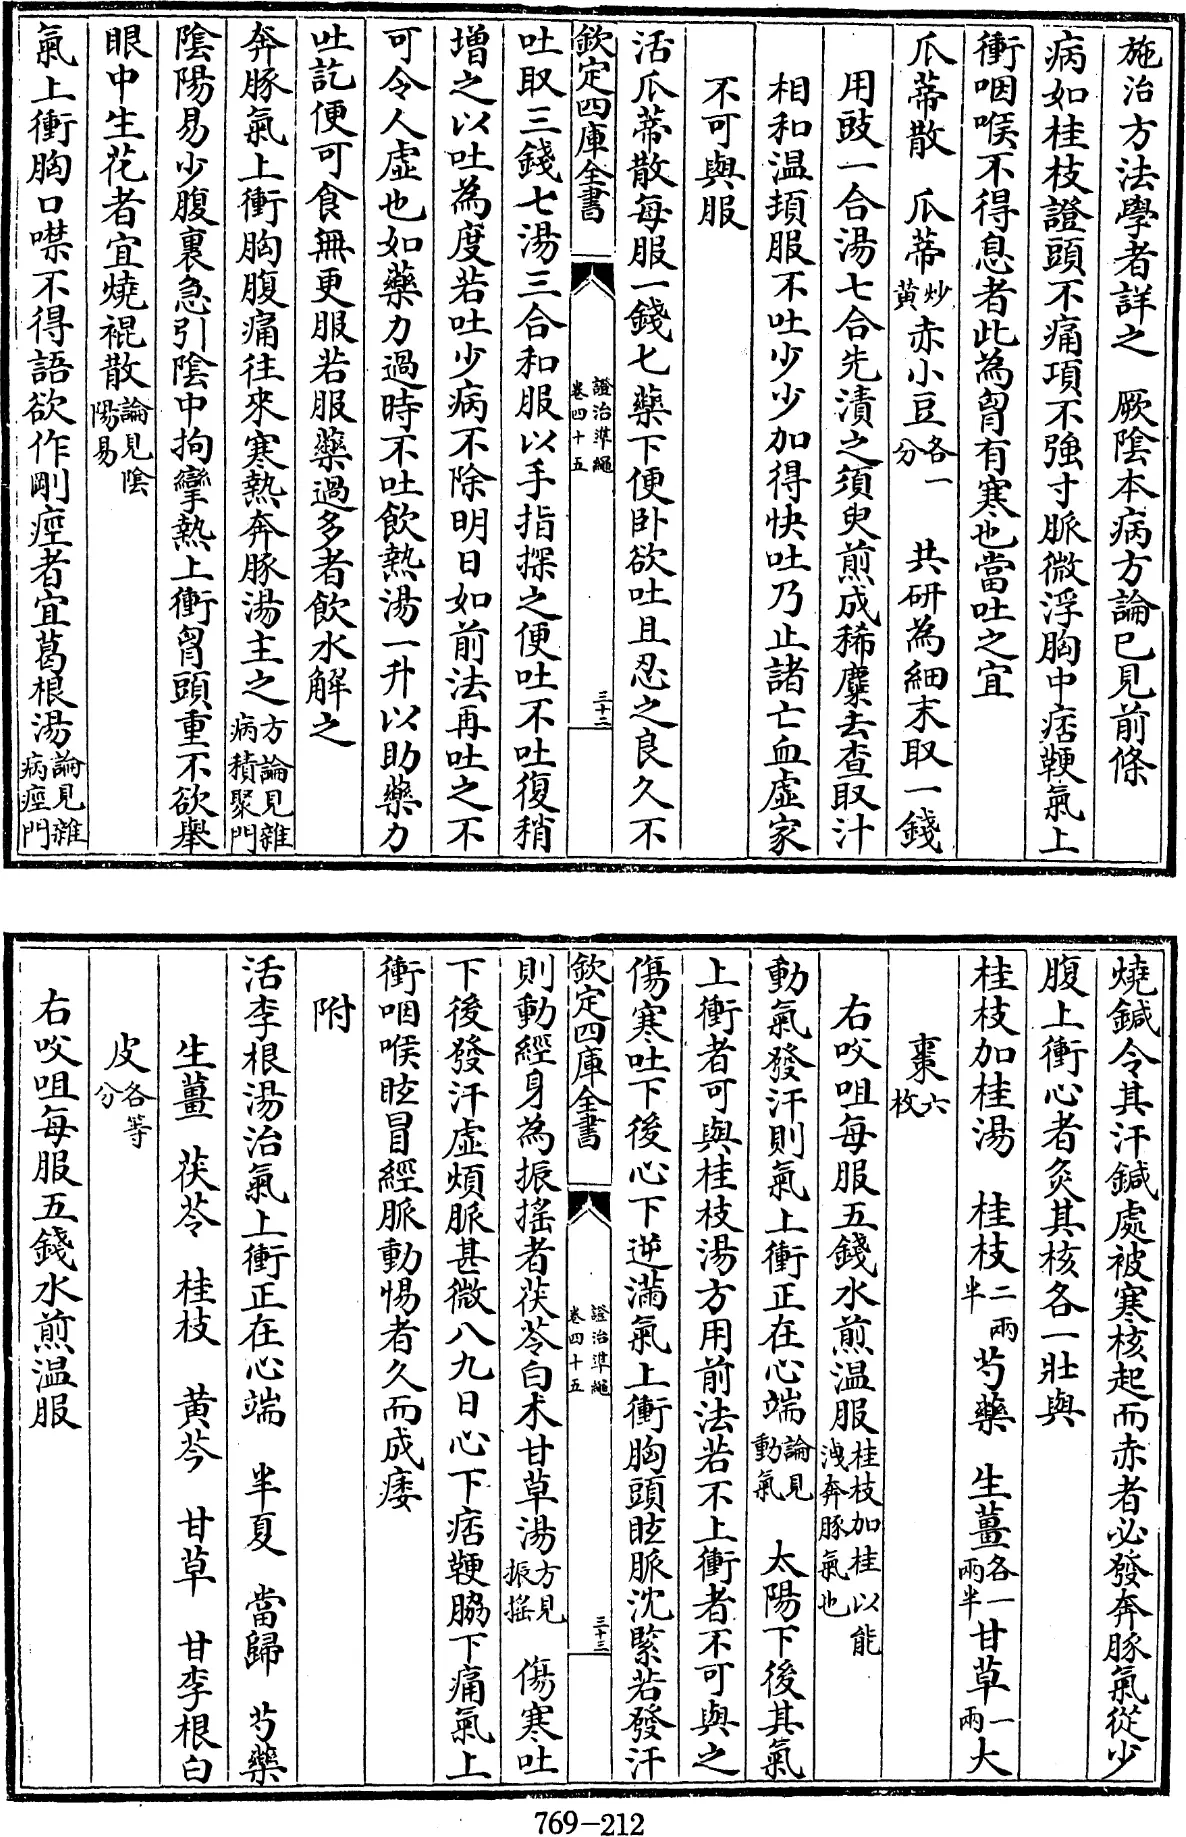 施治方法學者詳之　厥陰本病方論已見前條
病如桂枝證頭不痛項不強寸脈微浮胸中痞鞕氣上
衝咽喉不得息者此為胷有寒也當吐之宜
爪蒂散　爪蒂炒黄赤小豆各一分　共研為細末取一錢
用豉一合湯七合先漬之須臾煎成稀麋去查取汁
相和温頓服不吐少少加得快吐乃止諸亡血虛家
不可與服
活爪蒂散每服一錢匕藥下便卧欲吐且忍之良久不
欽定四庫全書
證治準繩
卷四十五
三十二
吐取三錢匕湯三合和服以手指探之便吐不吐復稍
增之以吐為度若吐少病不除明日如前法再吐之不
可令人虛也如藥力過時不吐飲熱湯一升以助藥力
吐訖便可食無更服若服藥過多者飲水解之
奔豚氣上衝胸腹痛往來寒熱奔豚湯主之方論見雜病積聚門
陰陽易少腹裏急引陰中拘攣熱上衝胷頭重不欲舉
眼中生花者宜燒裩散論見陰陽易
氣上衝胸口噤不得語欲作剛痙者宜葛根湯論見雜病痙門
燒鍼令其汗鍼處被寒核起而赤者必發奔豚氣從少
腹上衝心者灸其核各一壯與
桂枝加桂湯　桂枝二兩半　芍藥　生薑各一兩半甘草一兩大
棗六枚
右㕮咀每服五錢水煎温服桂枝加桂以能洩奔豚氣也
動氣發汗則氣上衝正在心端論見動氣　太陽下後其氣
上衝者可與桂枝湯方用前法若不上衝者不可與之
傷寒吐下後心下逆滿氣上衝胸頭眩脈沈緊若發汗
欽定四庫全書
證治準繩
卷四十五
三十三
則動經身為振摇者茯苓白术甘草湯方見振摇　傷寒吐
下後發汗虛煩脈甚微八九日心下痞鞕脇下痛氣上
衝咽喉眩冒經脈動惕者久而成痿
附
活李根湯治氣上衝正在心端　半夏　當歸　芍藥
生薑　茯苓　桂枝　黄芩　甘草　甘李根白
皮各等分
右㕮咀每服五錢水煎温服
769-212